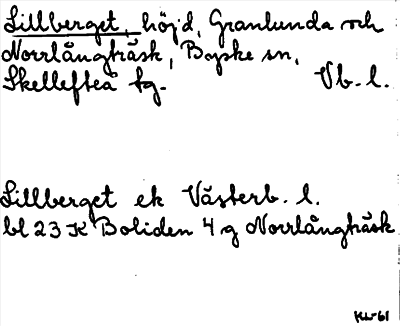 Lillberget, höjd, Granlunda och
Norrlångträsk, Bygske sn,
Skellefteå tg. Vb. l.
Lillberget ek Västerb. l.
bl 23 K Boliden 4 g Norrlångträsk
KW-61